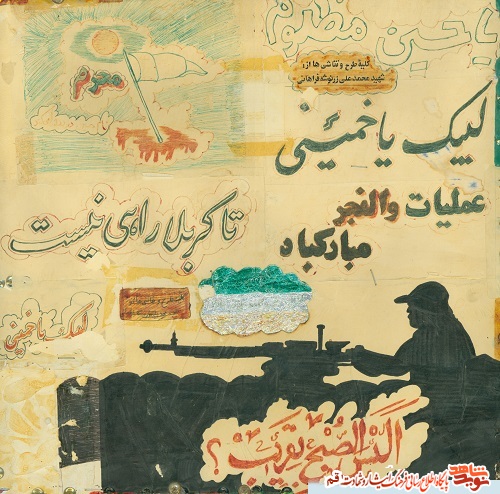 یا حسین مظلوم
کلیهٔ طرح و نقاشی ها از:
شهید محمدعلی زرنوشه فراهانی
محرم
لبیک یا خمینی
عملیات والفجر
مبارکباد
تا کربلا راهی نیست
لبیک یا خمینی
الیس الصبح بقریب؟
نوید شاهد
پایگاه اطلاع رسانی فرهنگ ایثار و شهادت | قم